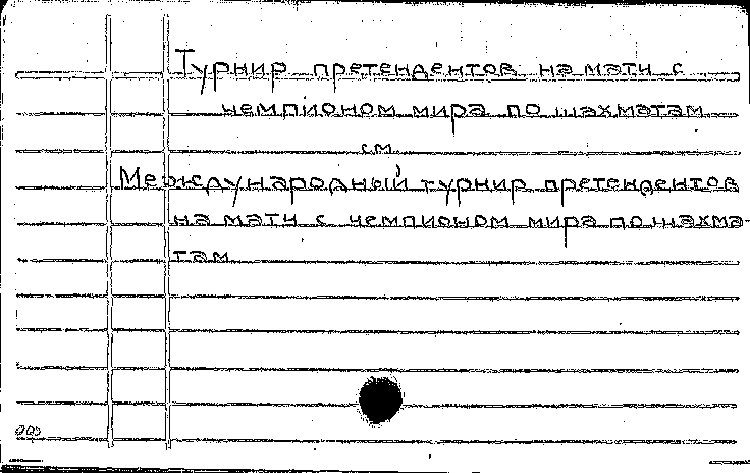 Турнир претендентов на матч с
чемпионом мира по шахматам
см.
Международный турнир претендентов
на матч с чемпионом мира по шахма-
там